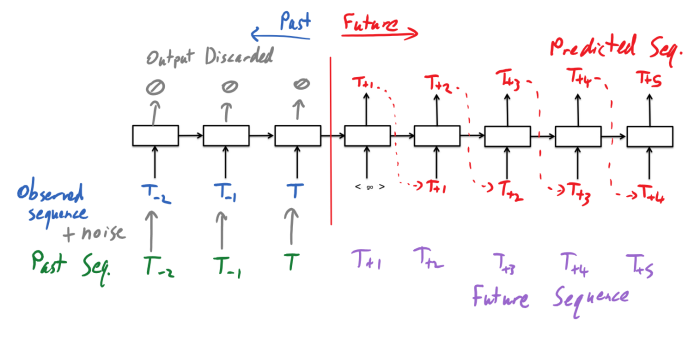 Past Future
Output Discarded
Predicted Seq.
T+1 T+2 T+3 T+4 T+5
Observed sequence
T-2 T-1 T < ∞ > T+1 T+2 T+3 T+4
+ noise
Past Seq. T-2 T-1 T
T+1 T+2 T+3 T+4 T+5
Future Sequence